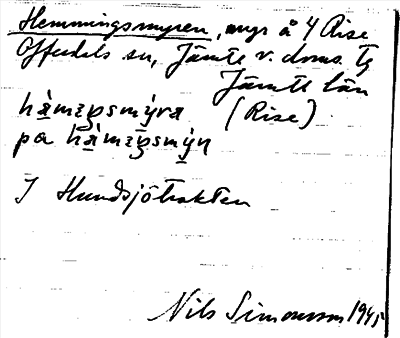 Hemmingsmyren, myr å 4 Rise
Offerdals sn, Jämtl. v. doms. tg
Jämtl län
hàmıŋsmýra (Rise)
pa hàmıŋsmýn
I Hundsjötrakten
Nils Simonsson 1945